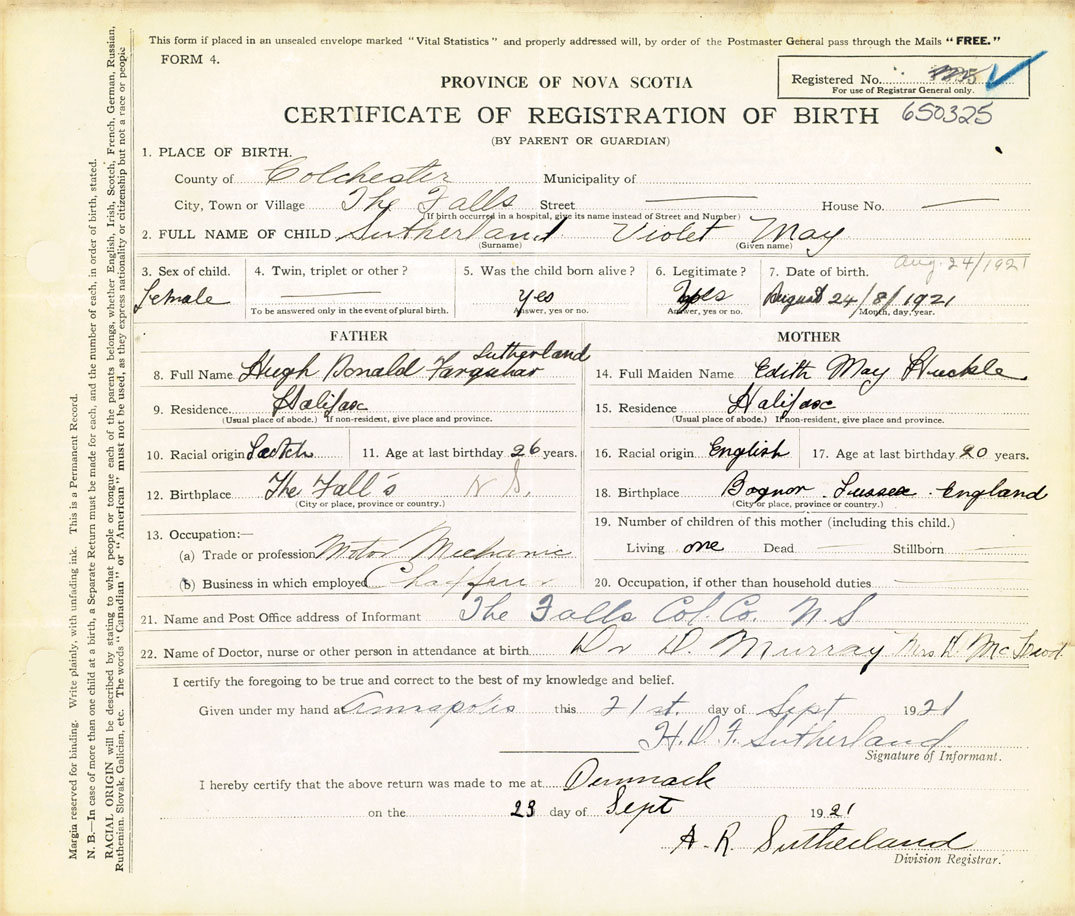 This form if placed in an unsealed envelope marked "Vital Statistics" and properly addressed will, by order of the Postmaster General pass through the Mails "FREE."
FORM 4.
Registered No.
For use of Registrar General only.
PROVINCE OF NOVA SCOTIA
CERTIFICATE OF REGISTRATION OF BIRTH 650325
(BY PARENT OR GUARDIAN)
1. PLACE OF BIRTH.
County of Colchester Municipality of
City, Town or Village The Falls Street — House No. —
(If birth occurred in a hospital, give its name instead of Street and Number)
2. FULL NAME OF CHILD Sutherland Violet May
(Surname) (Given name)
Aug. 24/1921
3. Sex of child. 4. Twin, triplet or other? 5. Was the child born alive? 6. Legitimate? 7. Date of birth.
female — yes yes August 24/8/1921
To be answered only in the event of plural birth. Answer, yes or no. Answer, yes or no. Month, day, year.
FATHER MOTHER
Sutherland
8. Full Name Hugh Donald Farquhar 14. Full Maiden Name Edith May Huckle
9. Residence Halifax 15. Residence Halifax
(Usual place of abode.) If non-resident, give place and province. (Usual place of abode.) If non-resident, give place and province.
10. Racial origin Scotch 11. Age at last birthday 26 years. 16. Racial origin English 17. Age at last birthday 20 years.
12. Birthplace The Fall's N S. 18. Birthplace Bognor Sussex England
(City or place, province or country.) (City or place, province or country.)
13. Occupation:— 19. Number of children of this mother (including this child.)
(a) Trade or profession Motor Mechanic Living one Dead — Stillborn —
(b) Business in which employed 20. Occupation, if other than household duties
21. Name and Post Office address of Informant The Falls Col. Co. N. S
22. Name of Doctor, nurse or other person in attendance at birth Dr D. Murray Mrs D.
I certify the foregoing to be true and correct to the best of my knowledge and belief.
Given under my hand at Annapolis this 21st. day of Sept 1921
H. D. F. Sutherland
Signature of Informant.
I hereby certify that the above return was made to me at Denmark
on the 23 day of Sept 1921
A. R. Sutherland
Division Registrar.
Margin reserved for binding. Write plainly, with unfading ink. This is a Permanent Record.
N. B.—In case of more than one child at a birth, a Separate Return must be made for each, and the number of each, in order of birth, stated.
RACIAL ORIGIN will be described by stating to what people or tongue each of the parents belongs, whether English, Irish, Scotch, French, German, Russian,
Ruthenian, Slovak, Galician, etc. The words "Canadian" or "American" must not be used, as they express nationality or citizenship but not a race or people